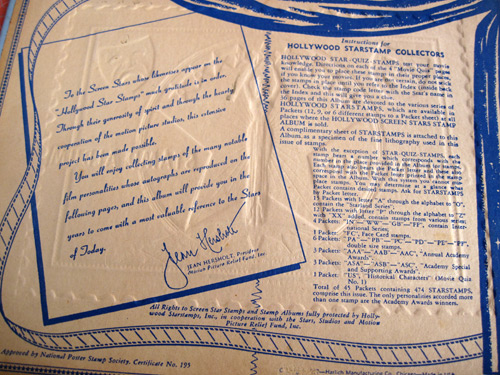 To the Screen Stars whose likenesses appear on the
"Hollywood Star Stamps" much gratitude is in order.
Through their generosity of spirit and through the hearty
cooperation of the motion picture studios, this extensive
project has been made possible.
You will enjoy collecting stamps of the many notable
film personalities whose autographs are reproduced on the
following pages; and this album will provide you in the
years to come with a most valuable reference to the Stars
of Today.
Jean Hersholt
JEAN HERSHOLT, President
Motion Picture Relief Fund, Inc.
Instructions for
HOLLYWOOD STARSTAMP COLLECTORS
HOLLYWOOD STAR-QUIZ-STAMPS test your movie
knowledge. Directions on each of the 6 "Movie Quiz" pages
will enable you to place these stamps in their proper places
if you know your movies. If you are not certain, do not use
the stamps until you have referred to the Index (inside back
cover). Check the stamp code letter with the star's name in
the Index and this will give you a clue.
36 pages of this Album are devoted to the various series of
HOLLYWOOD STARSTAMPS, which are available in
Packets (12, 9, or 6 different stamps to a Packet sheet) at all
places where the HOLLYWOOD SCREEN STARS STAMP
ALBUM is sold.
A complimentary sheet of STARSTAMPS is attached to this
Album as a specimen of the fine lithography used in this
issue of stamps.
With the exception of STAR-QUIZ-STAMPS, each
stamp bears a number which corresponds with the
number in the place provided for that stamp in the Album.
Each stamp also bears the Packet letter and these also
correspond with the Packet letter printed in the stamp
space in the Album. With this system you cannot misplace
your stamps. You may determine at a glance what
Packet contains desired stamps. Ask for STARSTAMPS
by Packet letter.
15 Packets with letter "A" through the alphabet to "O",
contain the "Starland Series".
12 Packets with letter "P" through the alphabet to "Z"
with "XX" added, contain stamps from various series.
4 Packets: "IN—WW—GB—FF", contain International
Series.
1 Packet: "FC", Face Card stamps.
6 Packets: "PA—PB—PC—PD—PE—PF",
double size stamps.
3 Packets: "AAA—AAB—AAC", "Annual Academy
Awards".
3 Packets: "ASA—ASB—ASC", "Academy Special
and Supporting Awards".
1 Packet: "US", "Historical Characters" (Movie Quiz
No. 1)
Total of 45 Packets containing 474 STARSTAMPS,
comprise this issue. The only personalities accorded more
than one stamp are the Academy Awards winners.
All Rights to Screen Star Stamps and Stamp Albums fully protected by Hollywood
Starstamps, Inc., in cooperation with the Stars, Studios and Motion
Picture Relief Fund, Inc.
Approved by National Poster Stamp Society, Certificate No. 195
Hatlich Manufacturing Co., Chicago—Made in U.S.A.